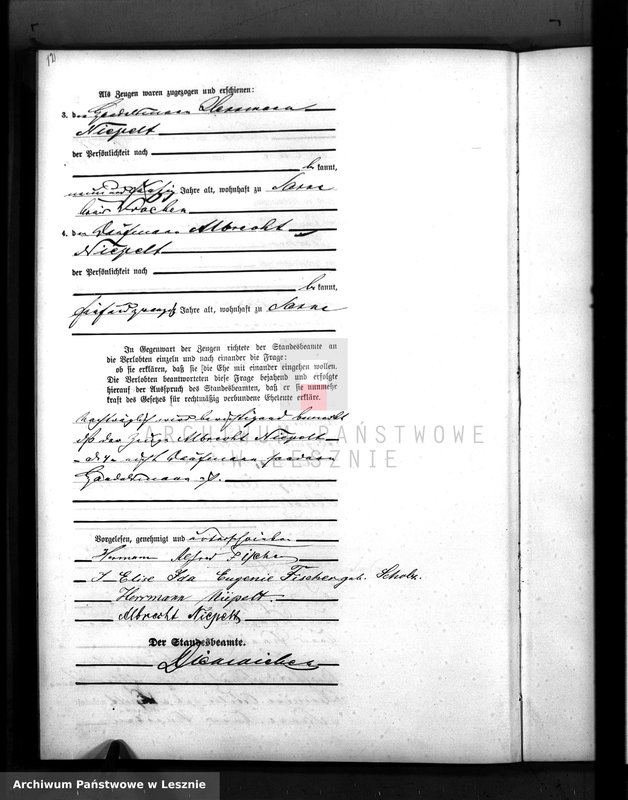 Als Zeugen waren zugezogen und erschienen:
3. der Handelsmann Herrmann
Niepelt
der Persönlichkeit nach
be kannt,
Jahre alt, wohnhaft zu Sarne
Kreis
4. der Kaufmann Albrecht
Niepelt
der Persönlichkeit nach
be kannt,
fünfundzwanzig Jahre alt, wohnhaft zu Sarne
In Gegenwart der Zeugen richtete der Standesbeamte an
die Verlobten einzeln und nach einander die Frage:
ob sie erklären, daß sie die Ehe mit einander eingehen wollen.
Die Verlobten beantworteten diese Frage bejahend und erfolgte
hierauf der Ausspruch des Standesbeamten, daß er sie nunmehr
kraft des Gesetzes für rechtmäßig verbundene Eheleute erkläre.
Nachträglich wird berichtigend bemerkt
daß der Zeuge Albrecht Niepelt
nicht Kaufmann sondern
Handelsmann ist.
Vorgelesen, genehmigt und unterschrieben
Hermann Alfred Fischer
Elise Ida Eugenie Fischer geb. Scholz.
Herrmann Niepelt.
Albrecht Niepelt
Der Standesbeamte.
ARCHIWUM PAŃSTWOWE
W LESZNIE
Archiwum Państwowe w Lesznie